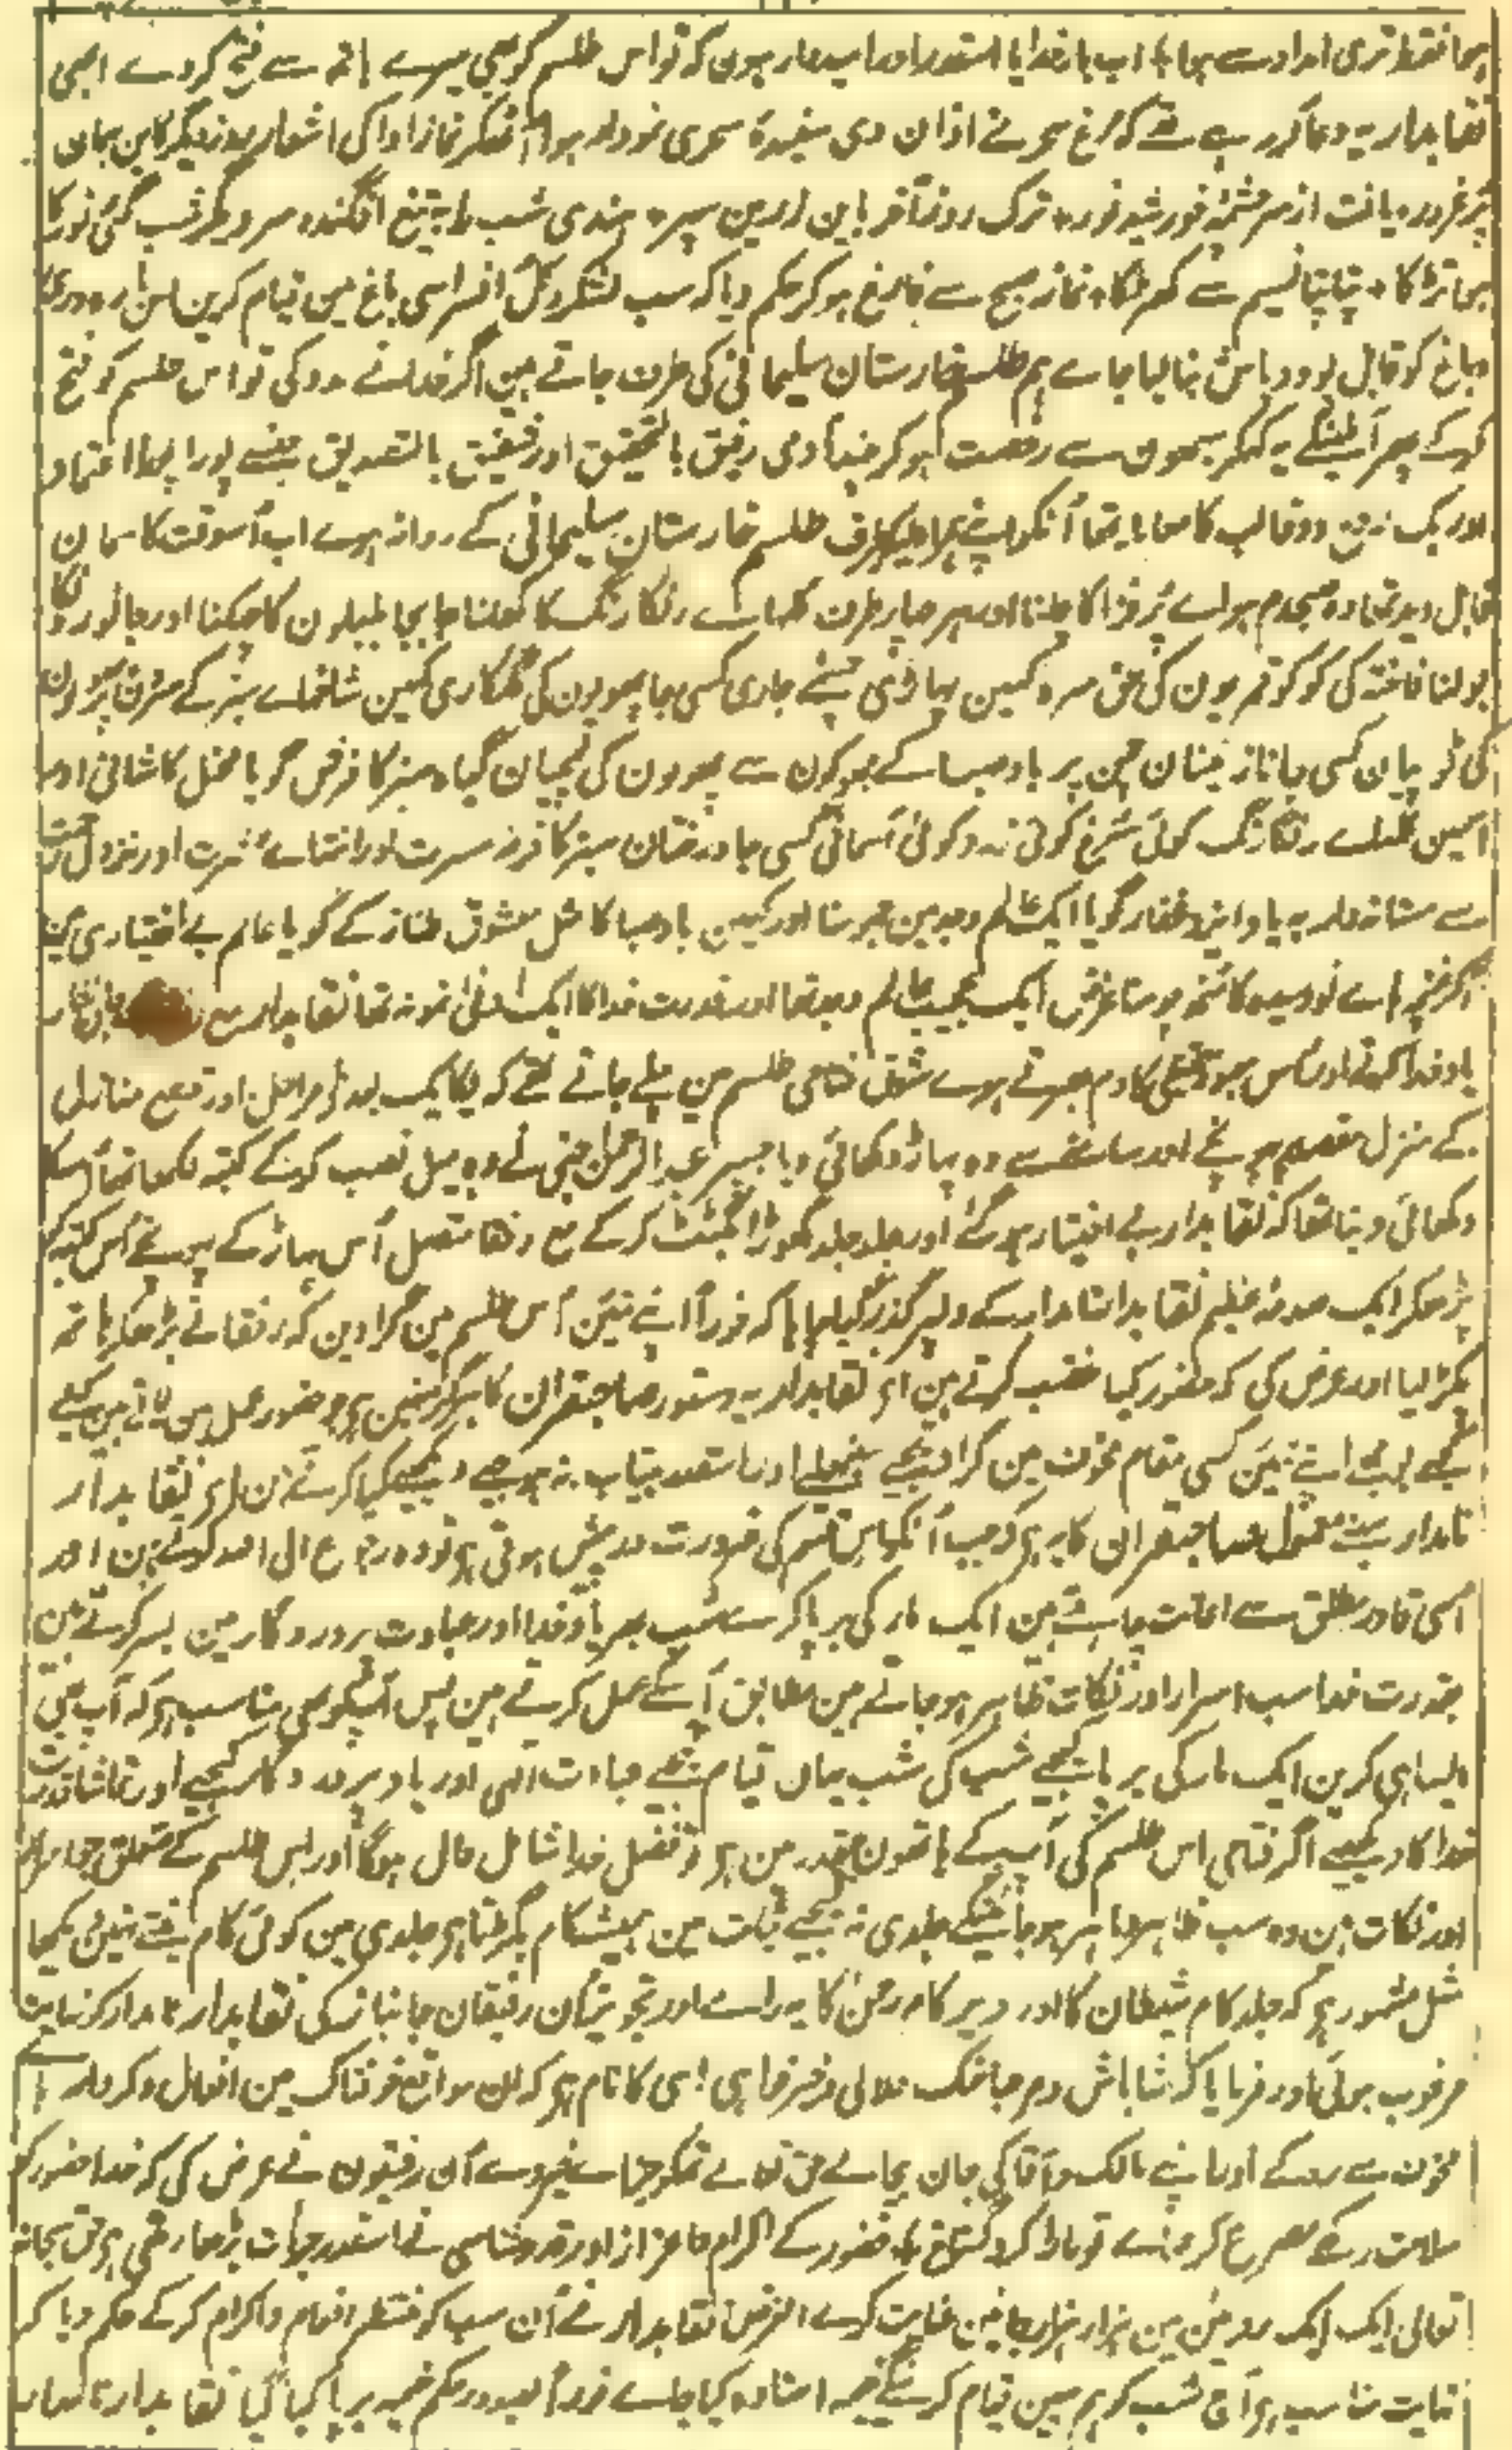 بچا فقط تری امداد سے بچا اب بار خدایا اسقدر اور امیدوار ہوں کہ تو اس طلسم کو بھی میرے ہاتھ سے فتح کر دے ابھی
نقابدار یہ دعا کر رہے تھے کہ مرغ سحر نے اذان دی سفیدۂ سحری نمودار ہوا اٹھکر نماز ادا کی اشعار روز دیگر کاین جہان
پرغرور یافت از سرچشمۂ خورشید نور ٭ ترک روز آخر باین زرین سپر ٭ ہندی شب را بہ تیغ افگندہ سر دیگر شب گئی نور کا
ہوا تڑکا ٭ پتا پتا نسیم سے کھڑکا ٭ نماز صبح سے فارغ ہو کر حکم دیا کہ سب لشکر و کل افسر اسی باغ میں قیام کرین اس بارہ دری
و باغ کو قابل بود و باش بنا لیا جاے ہم طلسم خارستان سلیمانی کی طرف جاتے ہین اگر خدا نے مدد کی تو اس طلسم کو فتح
کرکے پھر آملینگے یہ کہکر سبھون سے رخصت ہو کر چند آدمی رفیق بالتحقیق اور شفیق بالتصدیق جنسے پورا پورا اعتماد
اور یک روح دو قالب کا معاملہ تھا اُنکو اپنے ہمراہ لیکر طرف طلسم خارستان سلیمانی کے روانہ ہوے اب اُسوقت کا سمان
قابل دید تھا وہ صبحدم ہواے پُر فزا کا چلنا اور ہر چار طرف گلہاے رنگا رنگ کا کھلنا جا بجا بلبلون کا چہکنا اور جانورونکا
بولنا فاختہ کی کو کو قمریون کی حق سرہ کہین پہاڑی چشمے جاری کسی جا پھولون کی گلکاری کہین شاخہاے سبز کے سرون پر پھولون
کی ٹوپیان کسی جا نازنینان چمن پر باد صبا کے جھوکون سے پھولون کی گیاہ سبز کا فرش گویا مخمل کاشانی اور
اسمین گلہاے رنگا رنگ کوئی سُرخ کوئی زرد کوئی آسمانی کسی جا درختان سبز کا فرط مسرت اور انتہاے عشرت اور نزول رحمت
سے مستانہ وار بہ یاد ایزد غفار گویا ایک عالم وجد مین جھومنا اور کہین باد صبا کا مثل معشوق طناز کے گویا عالم بے اختیاری مین
آکر غنچہ ہاے نودمیدہ کا منہ چومنا غرض ایک عجیب عالم وجد تھا اور قدرت خدا کا ایک ادنیٰ نمونہ تھا نقابدار مع
یاد خدا کرتے اور دم بھرتے ہوے شوق فتاحی طلسم مین چلے جاتے تھے کہ یکایک بعد طے مراحل اور قطع منازل
کے منزل مقصود پر پہنچے اور سامنے سے وہ پہاڑ دکھائی دیا جسپر عبدالرحمٰن جنی نے وہ میل نصب کرکے کتبہ لکھا تھا اُسکا
دکھائی دینا تھا کہ نقابدار بے اختیار ہو گئے اور جلد جلد گھوڑا اگھٹٹ کر کے مع رفقا متصل اُس پہاڑ کے پہونچے اُس کتبہ کو
پڑھکر ایک صدمۂ عظیم نقابدار نامدار کے دلپر گذر گیا چاہا کہ فوراً اپنے تئین اُس طلسم مین گرا دین کہ رفقا نے بڑھکر ہاتھ
پکڑ لیا اور عرض کی کہ حضور کیا غضب کرتے ہین اے نقابدار یہ دستور صاحبقران کا ہرگز نہین ہے جو حضور عمل مین لاتے ہین
اپنے تئین کسی مقام مخوف مین گرا دیجیے سنبھلیے اور اسقدر بیتاب نہ ہوجیے دیکھیے کیا کرتے ہن اے نقابدار
نامدار معمول صاحبقران کا یہ ہے کہ جب اُنکو اس قسم کی ضرورت درپیش ہوتی ہے تو وہ رجوع الی اللہ کرتے ہین اور
اُسی قادر مطلق سے اعانت چاہتے ہین ایک راوٹی برپا کر کے شب بھر یاد خدا اور عبادت پروردگار مین بسر کرتے ہین
بقدرت خدا سب اسرار اور نکات ظاہر ہو جاتے ہین مطابق اُسکے عمل کرتے ہین پس آپکو بھی مناسب ہے کہ آپ بھی
ویسا ہی کرین ایک برپا کیجیے شب کی شب یہان قیام کیجیے عبادت الٰہی اور یاد پروردگار کیجیے اور تماشا قدرت
خدا کا دیکھیے اگر فتاحی اس طلسم کی آپ کے ہاتھون مقدر مین ہے تو فضل خدا شامل حال ہوگا اور اس طلسم کے متعلق جو اسرار
اور نکات ہین وہ سب ظاہر و باہر ہو جائینگے جلدی نہ کیجیے عجلت مین ہمیشہ کام بگڑتا ہے جلدی مین کوئی کام بنتے نہین دیکھا
مثل مشہور ہے کہ جلد کام شیطان کا اور دیر کام رحمٰن کا یہ راے اور تجویز اُن رفیقان جانباز کی نقابدار نامدار کو نہایت
مرغوب ہوئی اور فرمایا کہ شاباش و مرحبا نمک حلالی و خیرخواہی اسی کا نام ہے کہ اِن مواقع خوفناک مین افعال و کردار
مخوف سے روکے اور اپنے مالک و آقا کی جان بچالے حق تعالے تمکو جزاے خیر دے اُن رفیقون نے عرض کی کہ خدا حضور کو
سلامت رکھے مصرع کرمہاے تو مارا کرد گستاخ ٭ حضور کے اکرام و اعزاز اور قدر شناسی نے اسقدر جرأت بڑھا رکھی ہے حق سبحانہ
تعالیٰ ایک ایک کے عوض مین ہزار ہزار عنایت کرے الغرض نقابدار نے اُن سب کو منتظر انعام و اکرام کر کے حکم دیا کہ
نہایت مناسب ہے آج شب کو ہم یہین قیام کرینگے خیمہ استادہ کیا جاے فوراً بصدور حکم خیمہ برپا کیا گیا نقابدار نامدار